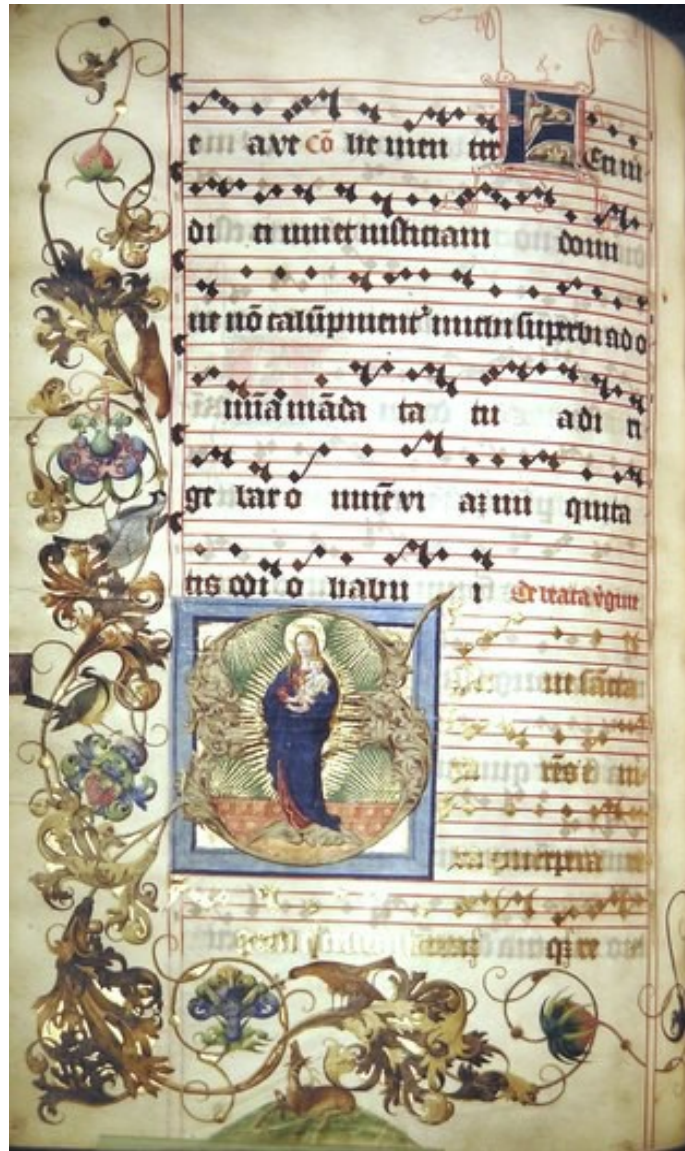 e ave cō ve nien ter Feci iu
di ci um et iusticiam domi
ne nō calūpnient' michi superbi ad o
mnia māda ta tu a di ri
ge bar o mnē vi aʒ iniquita
tis odi o habu i De beata v̄gine
ue sācta
rēs e ni
xa puerpera